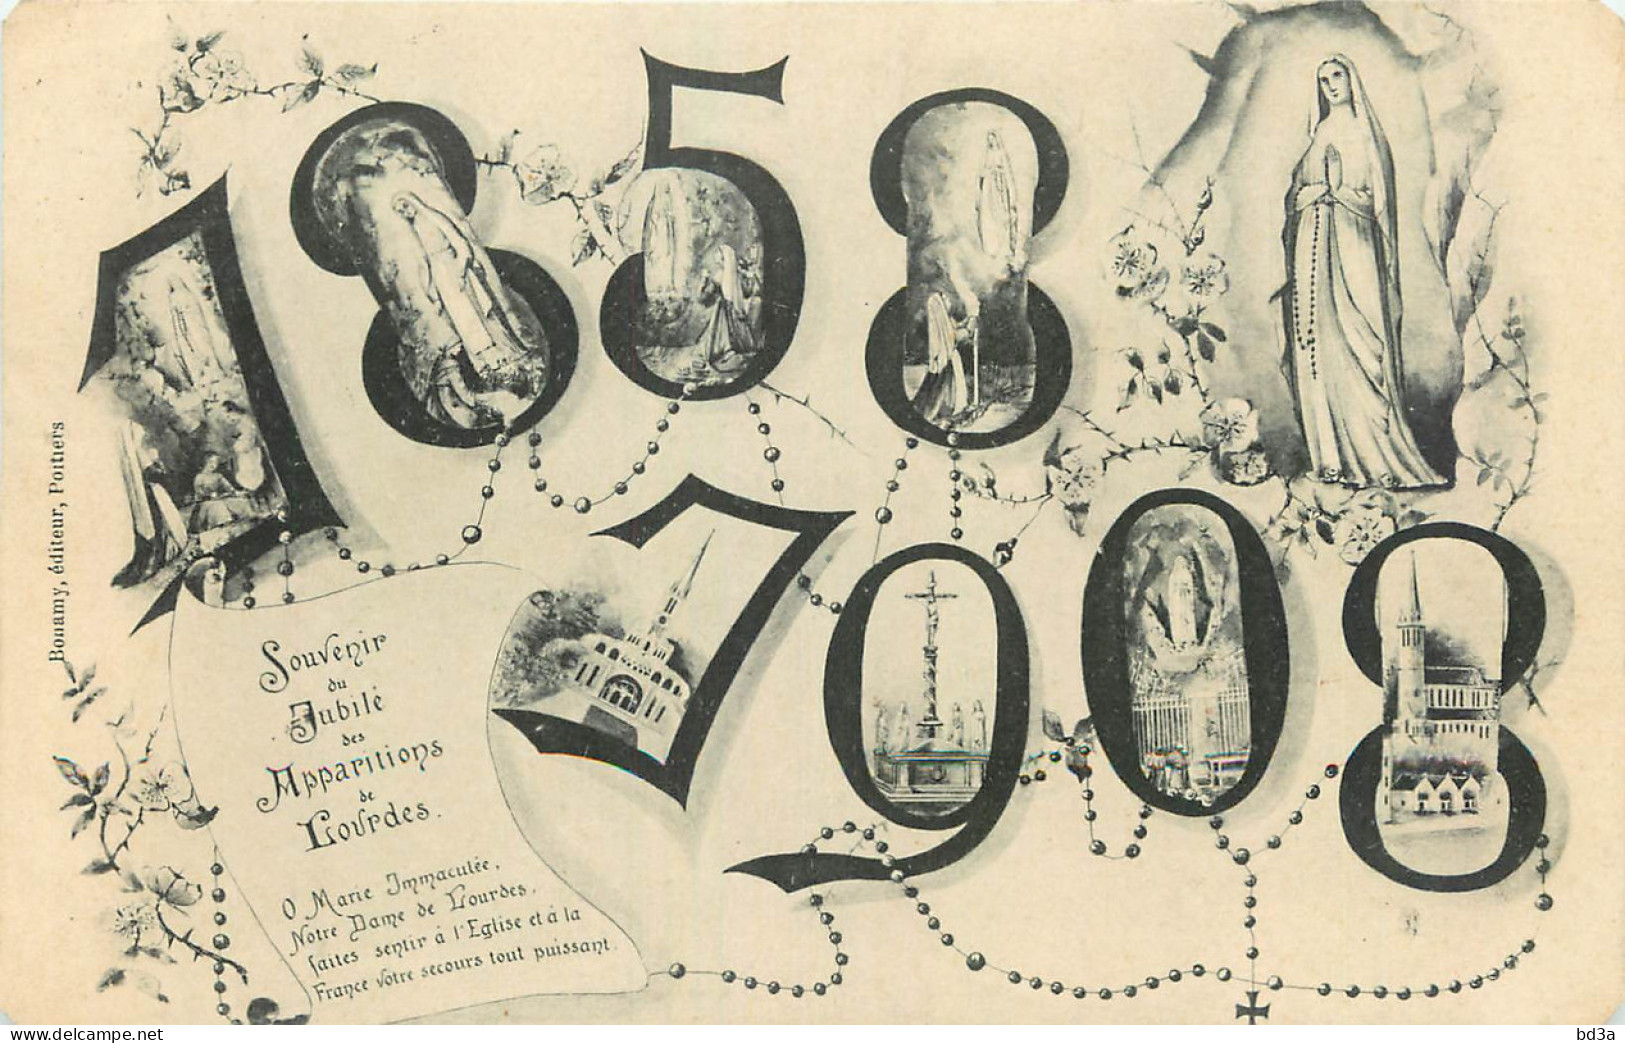 1858
1908
Souvenir
du
Jubilé
des
Apparitions
de
Lourdes.
O Marie Immaculée,
Notre Dame de Lourdes,
faites sentir à l'Eglise et à la
France votre secours tout puissant.
Bonamy, éditeur, Poitiers
www.delcampe.net
bd3a